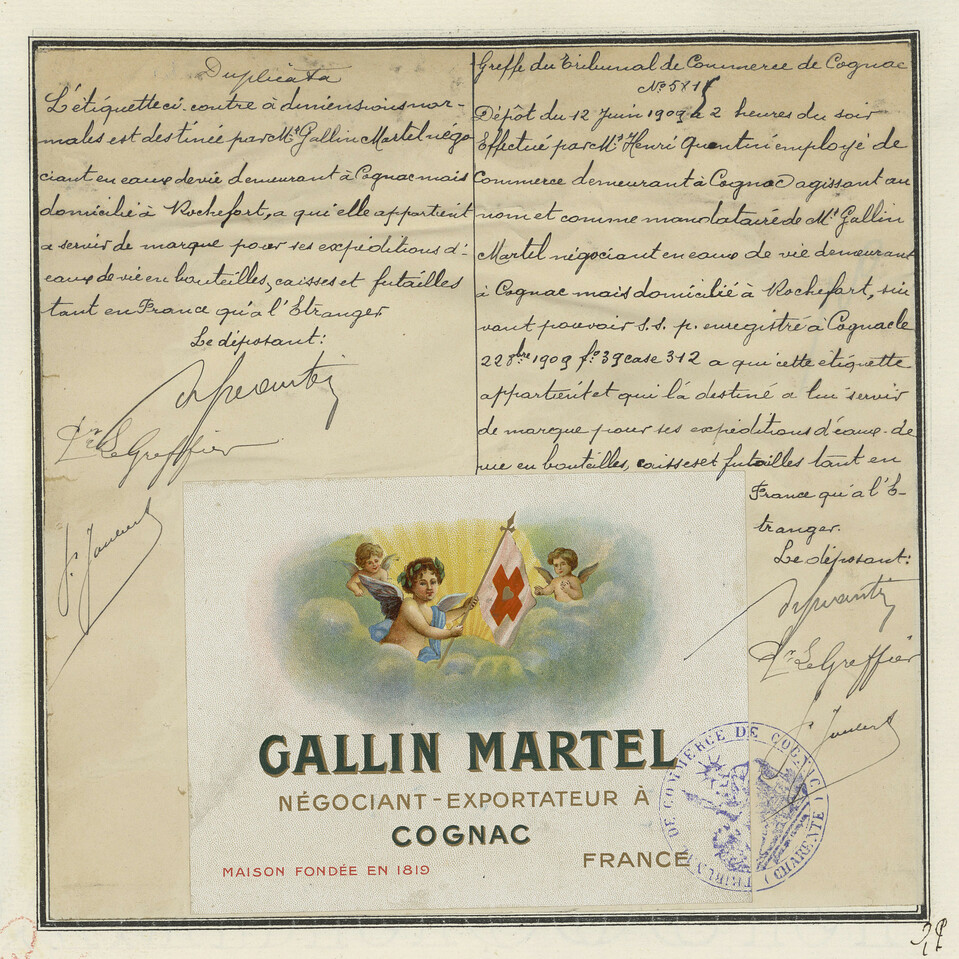 Duplicata
L'étiquette ci-contre à dimensions nor-
males est destinée par Mr Gallin Martel négo
ciant en eaux de vie demeurant à Cognac mais
domicilié à Rochefort, a qui elle appartient
a servir de marque pour ses expéditions d'
eaux de vie en bouteilles, caisses et futailles
tant en France qu'à l'Etranger
Le déposant:
Le Greffier
Greffe du Tribunal de Commerce de Cognac
Dépôt du 12 Juin 1909 à 2 heures du soir
Effectué par Mr Henri Quentin employé de
Commerce demeurant à Cognac agissant au
nom et comme mandataire de Mr Gallin
Martel négociant en eaux de vie demeurant
à Cognac mais domicilié à Rochefort, sui
vant pouvoir s.s.p. enregistré à Cognac le
22 8bre 1909 fo 39 case 312 a qui cette etiquette
appartient et qui l'a destiné a lui servir
de marque pour ses expéditions d'eaux-de
vie en bouteilles, caisses et futailles tant en
France qu'à l'E-
tranger.
Le déposant:
Le Greffier
GALLIN MARTEL
NÉGOCIANT-EXPORTATEUR À
COGNAC
FRANCE
MAISON FONDÉE EN 1819
TRIBUNAL DE COMMERCE DE COGNAC (CHARENTE)